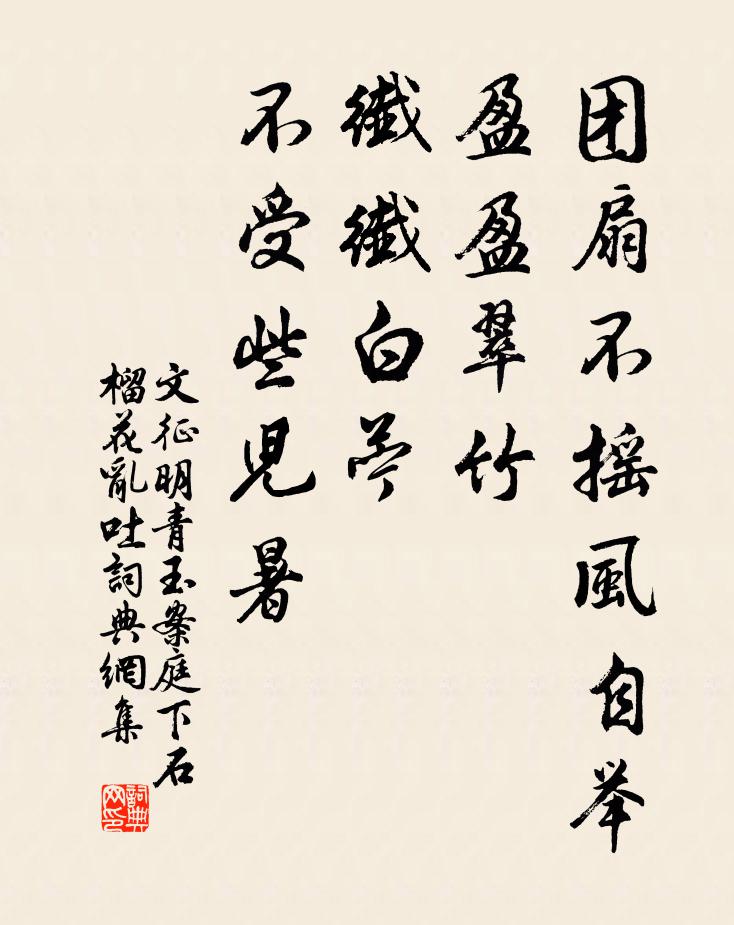 团扇不摇風自举
盈盈翠竹
纖纖白苧
不受些児暑
文征明青玉案庭下石
榴花亂吐詞典網集
詞典网印